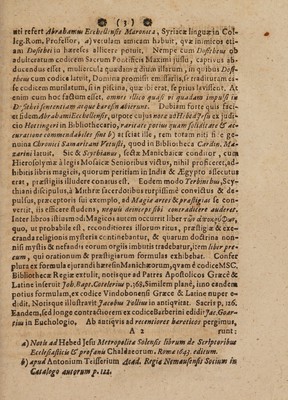 ( 3 )
uti refert Abrahamus Ecchellensis Maronita, Syriacæ linguæ in Col-
leg. Rom. Professor, a) vetulam amicam habuit, quæ inimicos eti-
am Dosithei in hæreses allicere potuit. Nempe cum Dositheus ob
adulteratum codicem Sacrum Pontificis Maximi jussu, captivus ab-
ducendus esset, muliercula quædam in diversorium, in quibus Dosi-
theum cum codica latuit, Domina promisit emissariis, se traditurum ei-
se codicem mundatum, si in piscina, quæ ibi erat, se prius lavissent. At-
dum cum hoc factum esset, omnes illico quasi vi quadam impulsi in
Dosithei sententiam atque hæresin abierunt. Dubiam forte quis faci-
et fidem Abrahami Ecchellensis, utpote cujus notæ ad Hebed Jesu ex ju-
dicio Hottingeri in Bibliothecario, raritate potius quam soliditate & ac-
curatione commendabiles sunt b) at sciat ille, rem totam niti fide ge-
nuina Chronici Samaritani Vetusti, quod in Bibliotheca Cardin. Ma-
zarini latuit. Sic & Scythianus, sectæ Manichaicæ conditor, cum
Hierosolymas à legis Mosaicæ Senioribus victus, nihil proficeret, ad-
hibitis libris magicis, quorum peritiam in India & Ægypto assecutus
erat, præstigiis illudere conatus est. Eodem modo Terbinthus, Scy-
thiani discipulus, à Mithræ sacerdotibus turpissime convictus & de-
pulsus, præceptoris sui exemplo, ad Magiæ artes & præstigias se con-
vertit, iis efficere studens, nequis deinceps sibi contradicere auderet.
Inter libros istiusmodi Magicos autem occurrit liber τῶν ἀποκρύφων,
quo, ut probabile est, reconditiores illorum ritus, præstigiæ & exe-
cranda religionis mysteria continebantur, & quarum doctrina non-
nisi mystis & nefandis eorum orgiis imbutis tradebatur, item liber pre-
cum, qui orationum & præstigiarum formulas exhibebat. Confer
plura ex formula ejurandi hæresin Manichæorum, quam è codice MSC.
Bibliothecæ Regiæ extulit, notisque ad Patres Apostolicos Græcè &
Latine inseruit Job. Bapt. Cotelerius p. 368. Similem planè, imo eandem
potius formulam, ex codice Vindobonensi Græce & Latine nuper ed-
idit, Notisque illustravit Jacobus Tollius in antiquitat. Sacris p. 126.
Eandem, sed longe contractiorem ex codice Barberini edidit Jac. Goar-
tius in Euchologio. Ab antiquis ad recentiores hæreticos pergimus,
A 2 sunt
a) Notis ad Hebed Jesu Metropolitæ Sobensis librum de Scriptoribus
Ecclesiasticis & profanis Chaldæorum. Romæ 1643. editum.
b) apud Antonium Teisserium Acad. Regia Nemausensis Socium in
Catalogo autorum p. 122.